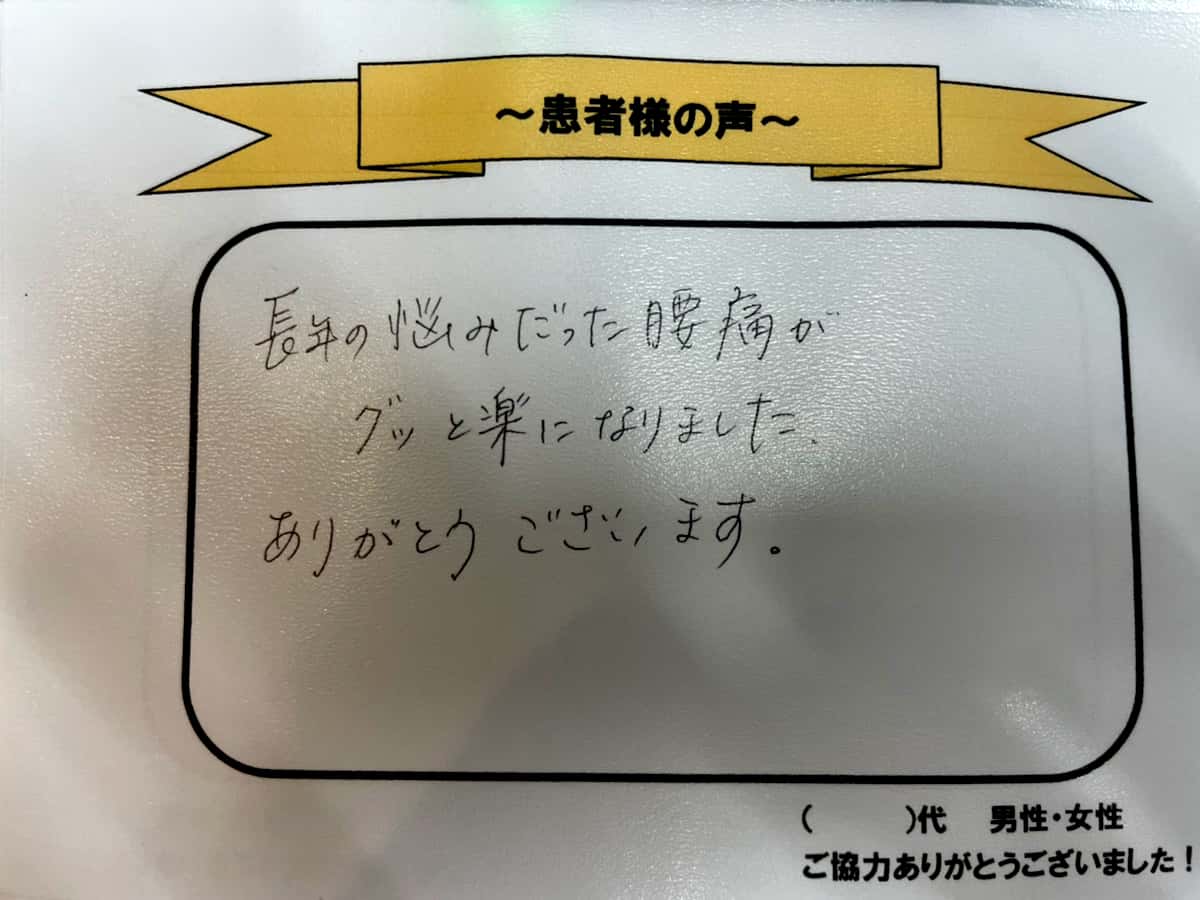 ～患者様の声～
長年の悩みだった腰痛が
グッと楽になりました、
ありがとうございます。
(　　　)代　男性・女性
ご協力ありがとうございました！